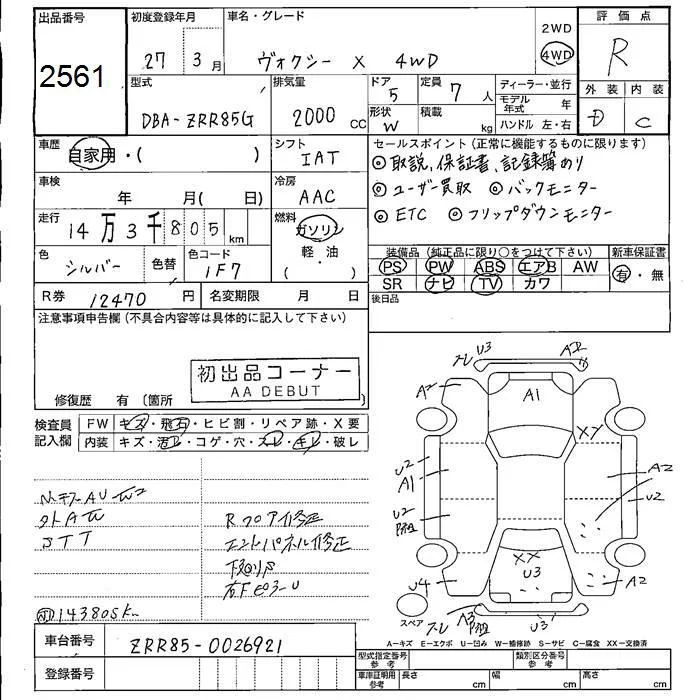 出品番号
2561
初度登録年月
27 3月
車名・グレード
ヴォクシー X 4WD
2WD
4WD
評価点
R
外装 内装
D C
型式
DBA-ZRR85G
排気量
2000 CC
ドア
5
定員
7人
形状
W
積載
kg
ディーラー・並行
モデル年式 年
ハンドル 左・右
車歴
自家用・( )
シフト
IAT
セールスポイント(正常に機能するものに限ります)
◎取説、保証書、記録簿あり
◎ユーザー買取 ◎バックモニター
◎ETC ◎フリップダウンモニター
車検
年 月( 日)
冷房
AAC
走行
14万3千805km
燃料
ガソリン
軽・油
( ・ )
色
シルバー
色替
色コード
1F7
装備品(純正品に限り○をつけて下さい)
PS PW ABS エアB AW
SR ナビ TV カワ
新車保証書
有・無
R券 12470円
名変期限 月 日
後日品
注意事項申告欄(不具合内容等は具体的に記入して下さい)
初出品コーナー
AA DEBUT
修復歴 有 〔箇所
検査員記入欄
FW キズ・飛石・ヒビ割・リペア跡・X要
内装 キズ・汚レ・コゲ・穴・スレ・キレ・破レ
RフロアI修正
エンドパネル修正
143805K
U3
A2
A2
A1
XX
U2
A1
U2
A2
U2
XX
U3
U4
A2
A3
U3
スペア
A-キズ E-エクボ U-凹み W-補修跡 S-サビ C-腐食 XX-交換済
車台番号
ZRR85-0026921
登録番号
型式指定番号
参考
類別区分番号
参考
車庫証明用
参考
長さ cm
幅 cm
高さ cm